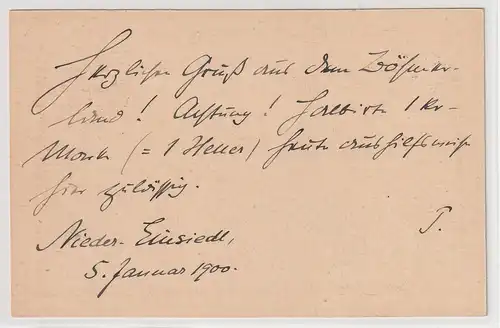 Herzlichen Gruß aus dem Böhmer-
land! Achtung! Halbirte 1 kr-
Marke (= 1 Heller) heute aushilfsweise
hier zulässig.
Nieder-Einsiedl,
5. Januar 1900.